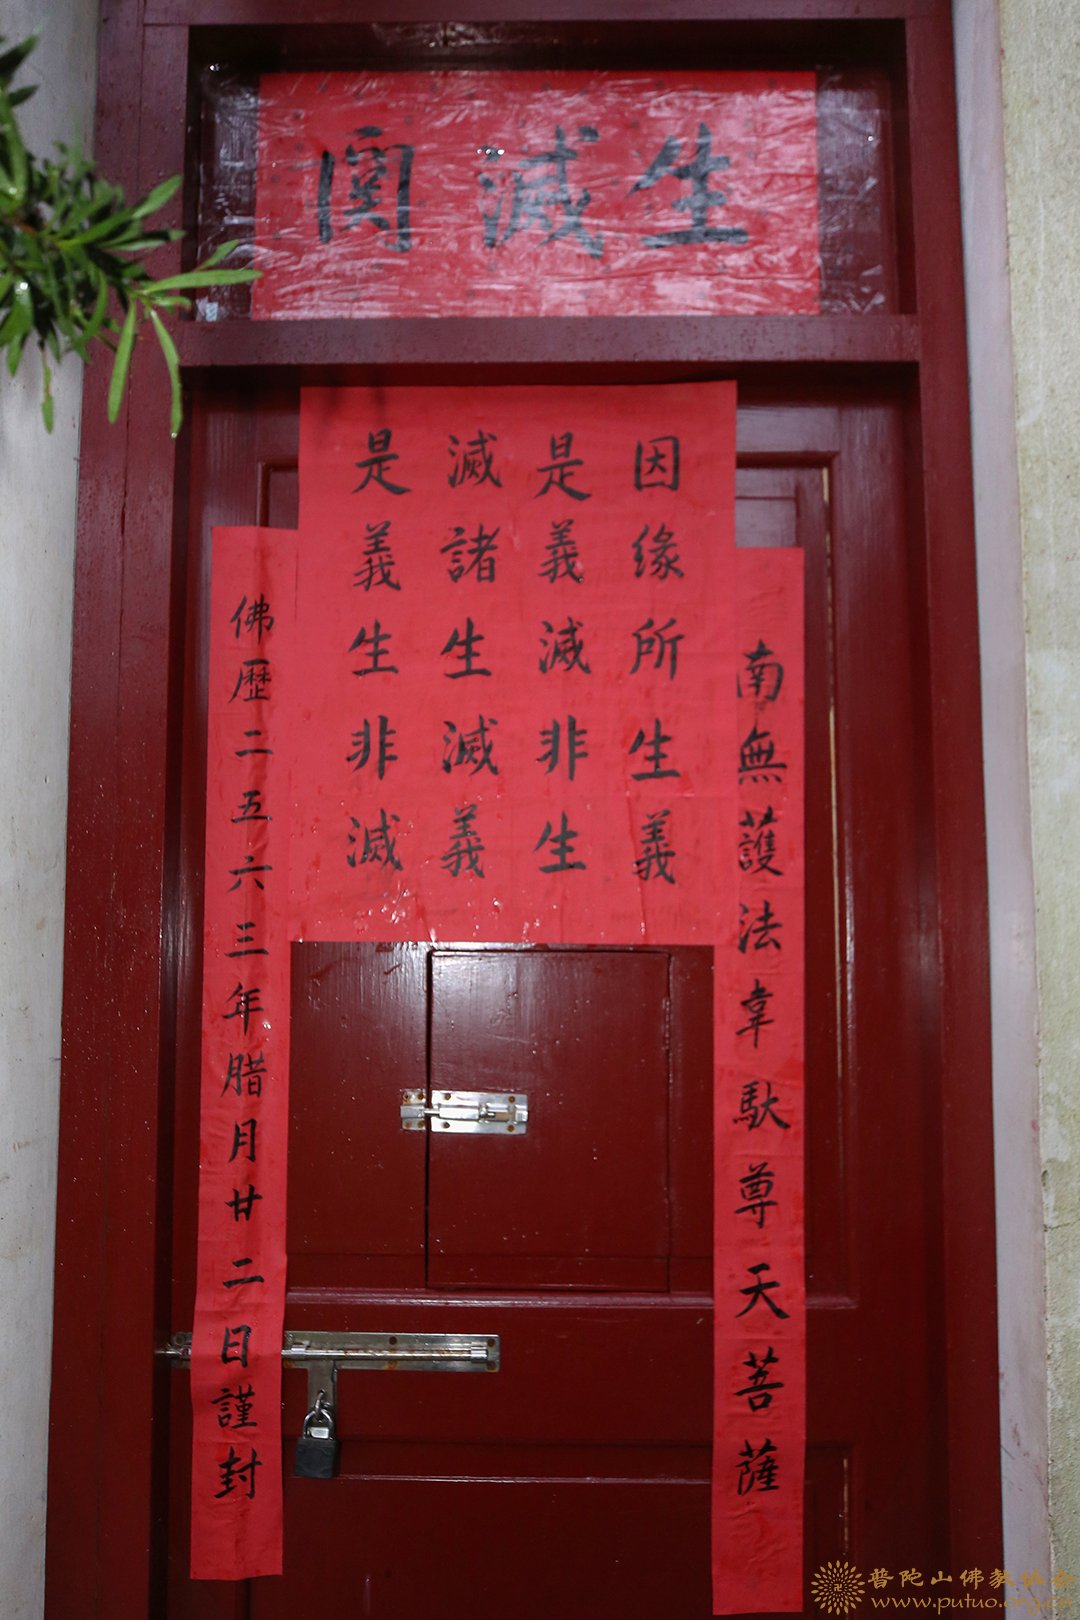 生滅関
南無護法韋馱尊天菩薩
因缘所生義
是義滅非生
滅諸生滅義
是義生非滅
佛歷二五六三年腊月廿二日謹封
普陀山佛教协会
www.putuo.org.cn